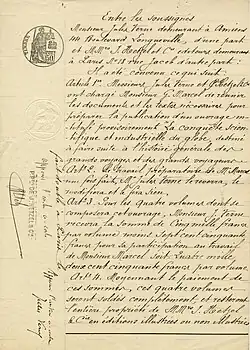 Entre les soussignés
Monsieur Jules Verne demeurant à Amiens
44 Boulevard Longueville, d'une part
et MM. J. Hetzel et Cie éditeurs demeurant
à Paris No 18 rue Jacob d'autre part :
Il a été convenu ce qui suit
Article 1er. Messieurs Jules Verne et J. Hetzel
ont chargé Monsieur G. Marcel de réunir
les documents et les textes nécessaires pour
préparer la publication d'un ouvrage in-
titulé provisoirement La conquête scien-
tifique et industrielle du globe, destiné
à faire suite à l'histoire générale des
grands voyages et des grands voyageurs
Art. 2. Le travail préparatoire de M. Marcel
une fois fait, M. Jules Verne le reverra, le
modifiera et le fera sien.
Art. 3. Pour les quatre volumes dont se
composera cet ouvrage, Monsieur J. Verne
recevra la somme de Cinq mille francs
par volume, moins sept cent cinquante
francs pour sa participation au travail
de Monsieur Marcel soit Quatre mille
deux cent cinquante francs par volume
Art. 4. Moyennant le paiement de
ces sommes, ces quatre volumes
seront soldés complètement, et resteront
l'entière propriété de MM. J. Hetzel
& Cie en éditions illustrées ou non illustrées
Jules Verne